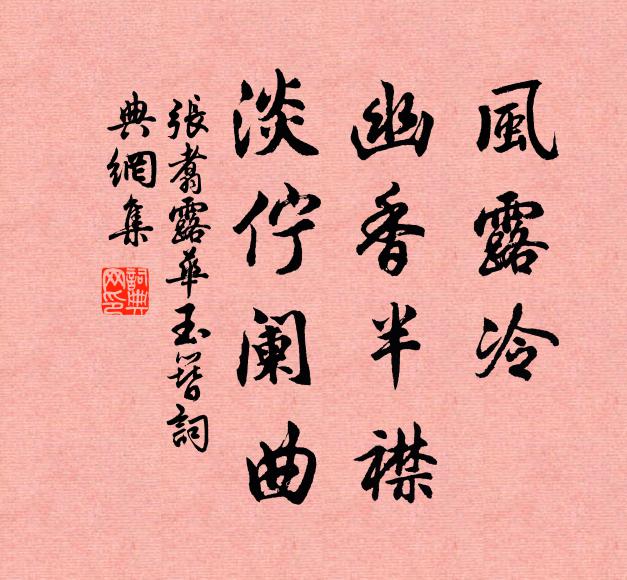 風露冷
幽香半襟
淡佇阑曲
張翥露華玉簪詞
典網集
詞典网印